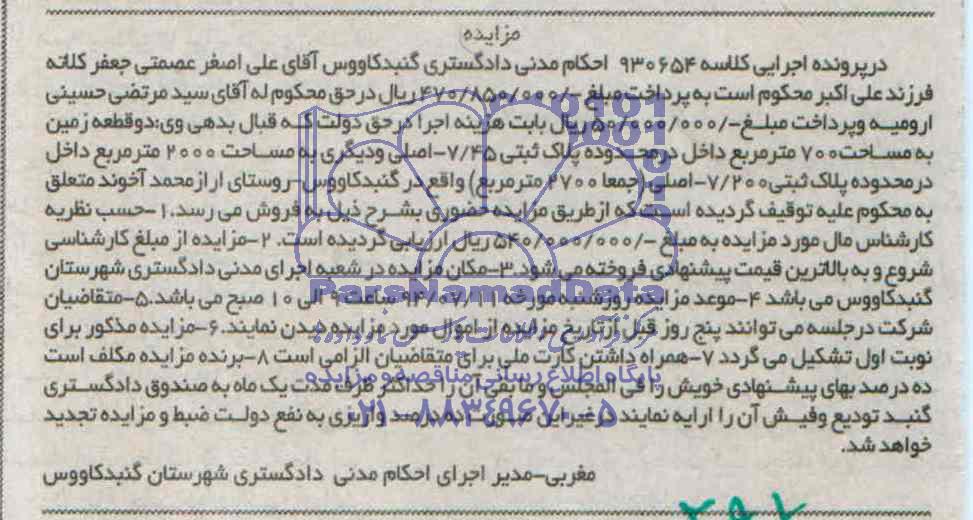 مزایده
درپرونده اجرایی کلاسه ۹۳۰۶۵۴ احکام مدنی دادگستری گنبدکاووس آقای علی اصغر عصمتی جعفر کلاته
فرزند علی اکبر محکوم است به پرداخت مبلغ -/۴۷۰/۸۵۰/۰۰۰ ریال درحق محکوم له آقای سید مرتضی حسینی
ارومیه وپرداخت مبلغ-/۵۰/۰۰۰/۰۰۰ ریال بابت هزینه اجرا درحق دولت که قبال بدهی وی:دوقطعه زمین
به مساحت۷۰۰ مترمربع داخل درمحدوده پلاک ثبتی ۷/۴۵-اصلی ودیگری به مساحت ۲۰۰۰ مترمربع داخل
درمحدوده پلاک ثبتی۷/۲۰۰-اصلی (جمعا ۲۷۰۰ مترمربع) واقع در گنبدکاووس-روستای اراز محمد آخوند متعلق
به محکوم علیه توقیف گردیده است که ازطریق مزایده حضوری بشرح ذیل به فروش می رسد.۱-حسب نظریه
کارشناس مال مورد مزایده به مبلغ -/۵۴۰/۰۰۰/۰۰۰ ریال ارزیابی گردیده است. ۲-مزایده از مبلغ کارشناسی
شروع و به بالاترین قیمت پیشنهادی فروخته می شود.۳-مکان مزایده در شعبه اجرای مدنی دادگستری شهرستان
گنبدکاووس می باشد ۴-موعد مزایده روزشنبه مورخه ۹۴/۰۷/۱۱ ساعت ۹ الی ۱۰ صبح می باشد.۵-متقاضیان
شرکت درجلسه می توانند پنج روز قبل ازتاریخ مزایده از اموال مورد مزایده دیدن نمایند.۶-مزایده مذکور برای
نوبت اول تشکیل می گردد ۷-همراه داشتن کارت ملی برای متقاضیان الزامی است ۸-برنده مزایده مکلف است
ده درصد بهای پیشنهادی خویش را فی المجلس و مابقی آن را حداکثر ظرف مدت یک ماه به صندوق دادگستری
گنبد تودیع وفیش آن را ارایه نمایند درغیراین صورت ده درصد واریزی به نفع دولت ضبط و مزایده تجدید
خواهد شد.
مغربی-مدیر اجرای احکام مدنی دادگستری شهرستان گنبدکاووس
ParsNamadData
پایگاه اطلاع رسانی مناقصه و مزایده
۰۲۱-۸۸۳۴۹۶۷۰-۵